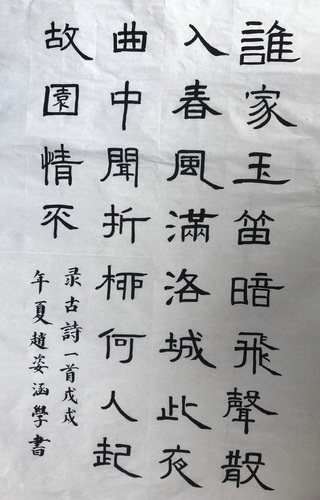 誰家玉笛暗飛聲散
入春風滿洛城此夜
曲中聞折柳何人起
故園情不
录古詩一首戊戌
年夏趙姿涵學書